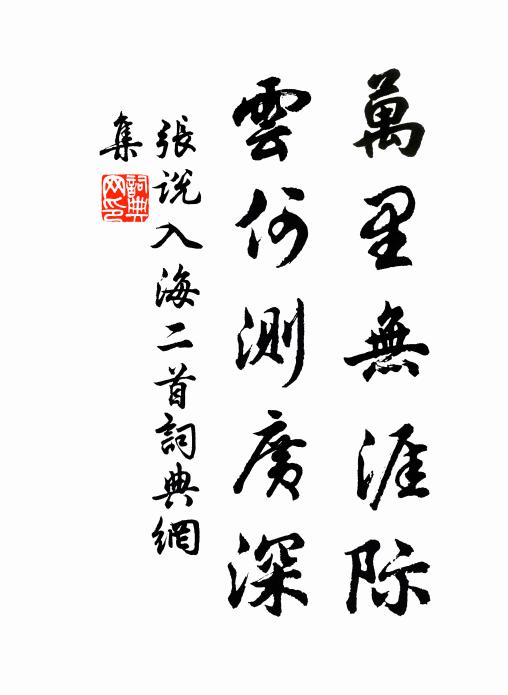 萬里無涯际
雲何測廣深
張説入海二首詞典網
集
詞典网印